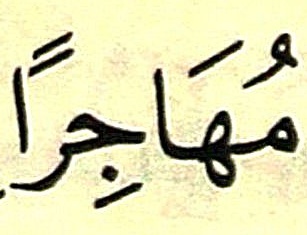 مُهَاجِرًا